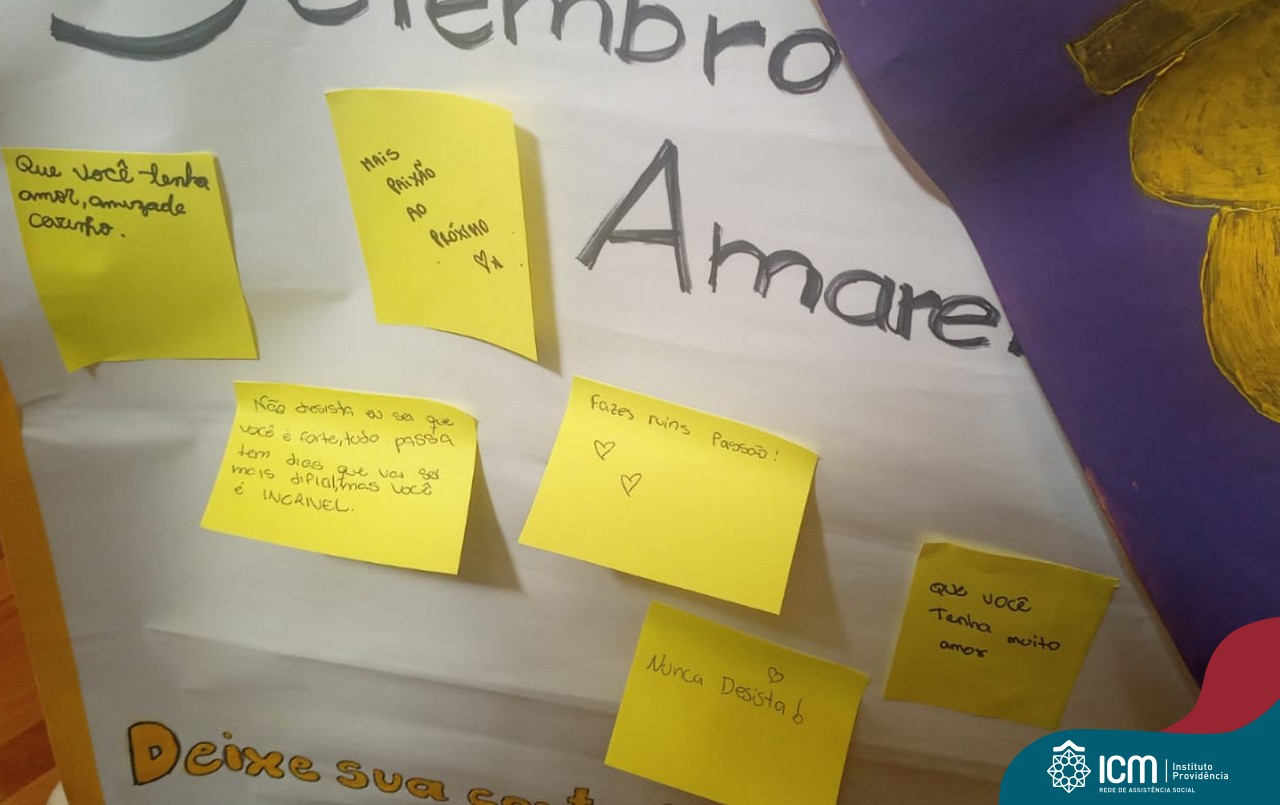 Setembro
Amare
Que você tenha
amor, amizade
carinho.
MAIS
PAIXÃO
AO
PRÓXIMO
Não desista eu sei que
você é forte, tudo passa
tem dias que vai ser
mais dificil, mas você
é INCRIVEL.
Fazes ruins Passão!
Nunca Desista!
QUE VOCÊ
Tenha muito
amor
Deixe sua
ICM
Instituto
Providência
REDE DE ASSISTÊNCIA SOCIAL